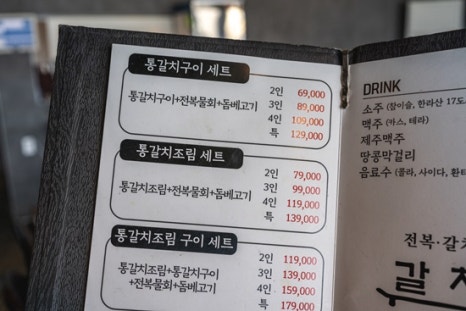 통갈치구이 세트
통갈치구이+전복물회+돔베고기
2인 69,000
3인 89,000
4인 109,000
특 129,000
통갈치조림 세트
통갈치조림+전복물회+돔베고기
2인 79,000
3인 99,000
4인 119,000
특 139,000
통갈치조림 구이 세트
통갈치조림+통갈치구이
+전복물회+돔베고기
2인 119,000
3인 139,000
4인 159,000
특 179,000
DRINK
소주 (참이슬, 한라산 17도
맥주 (카스, 테라)
제주맥주
땅콩막걸리
음료수 (콜라, 사이다, 환타
전복·갈치
갈치